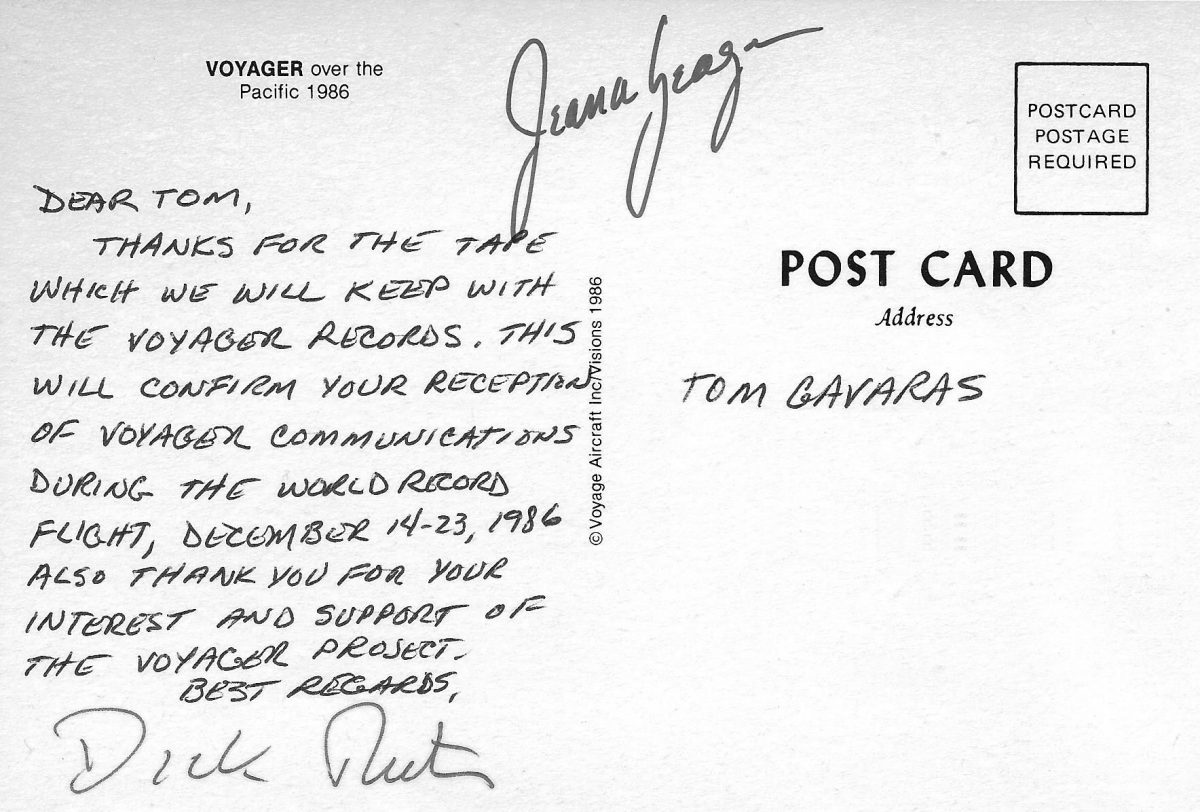 VOYAGER over the
Pacific 1986
Jeana Yeager
DEAR TOM,
THANKS FOR THE TAPE
WHICH WE WILL KEEP WITH
THE VOYAGER RECORDS. THIS
WILL CONFIRM YOUR RECEPTION
OF VOYAGER COMMUNICATIONS
DURING THE WORLD RECORD
FLIGHT, DECEMBER 14-23, 1986
ALSO THANK YOU FOR YOUR
INTEREST AND SUPPORT OF
THE VOYAGER PROJECT.
BEST REGARDS,
Dick Rutan
© Voyage Aircraft Inc/Visions 1986
POSTCARD
POSTAGE
REQUIRED
POST CARD
Address
TOM GAVARAS